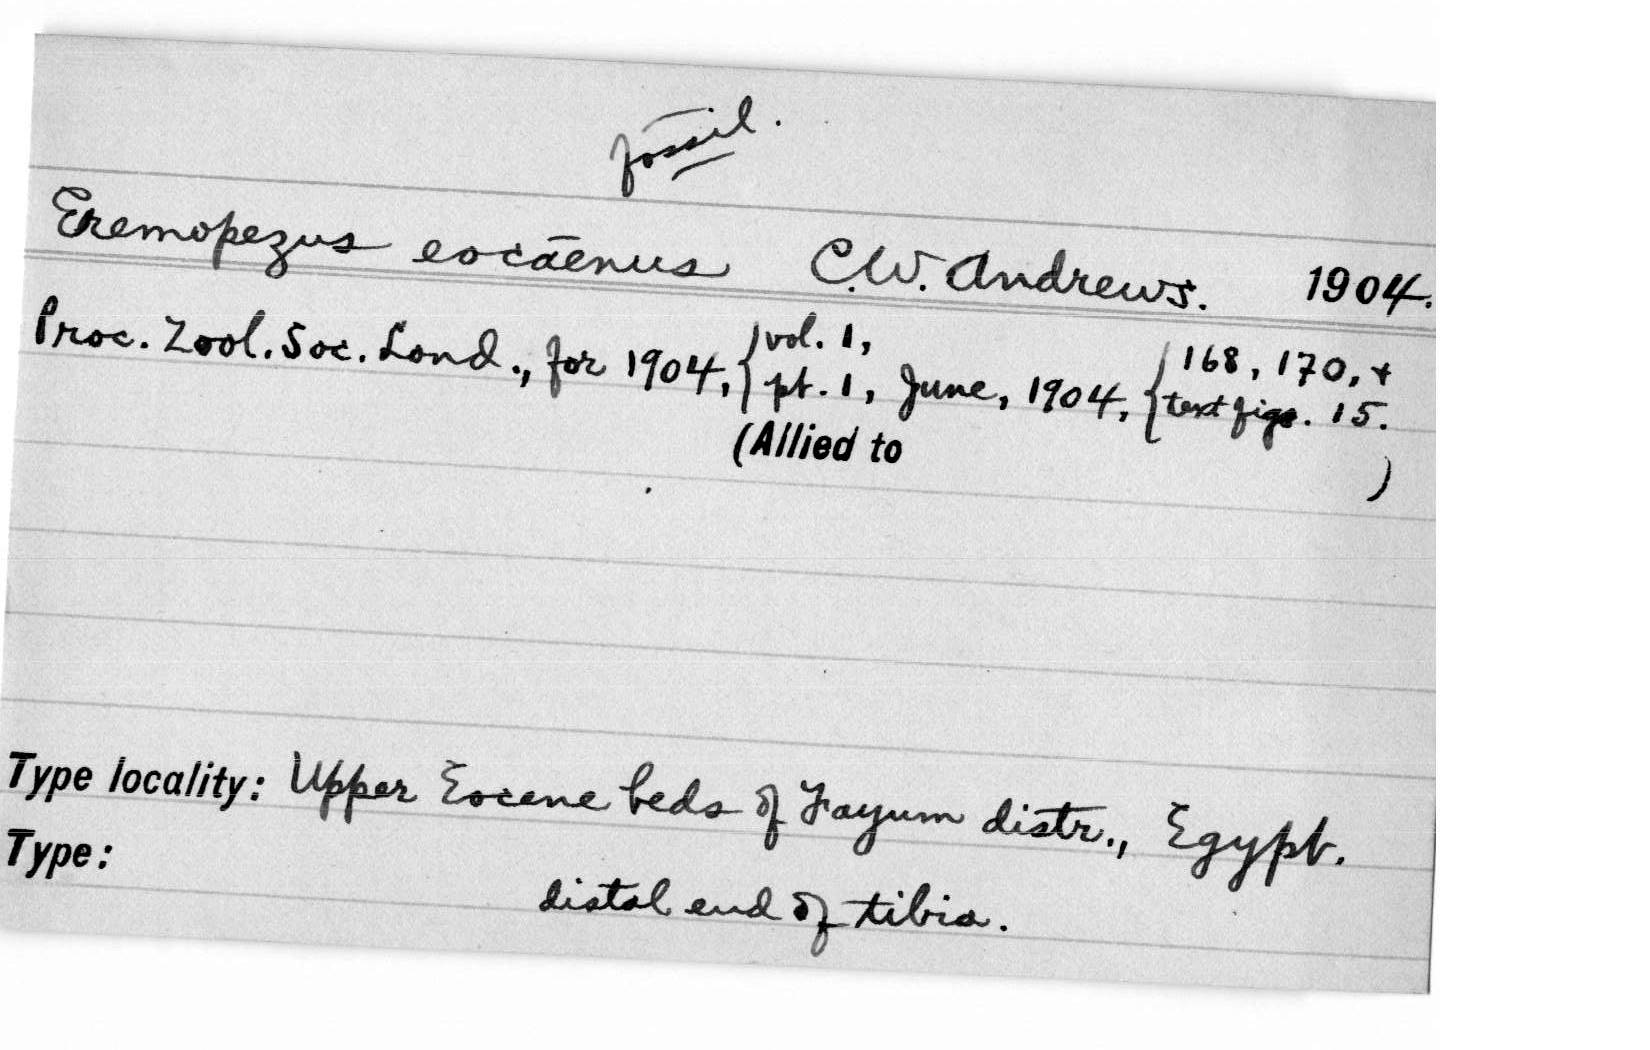 fossil.
Eremopezus eocaenus C.W. Andrews. 1904.
Proc. Zool. Soc. Lond., for 1904, { vol. 1, { 168, 170, +
pt. 1, June, 1904, text figs. 15.
(Allied to )
Type locality: Upper Eocene beds of Fayum distr., Egypt.
Type:
distal end of tibia.